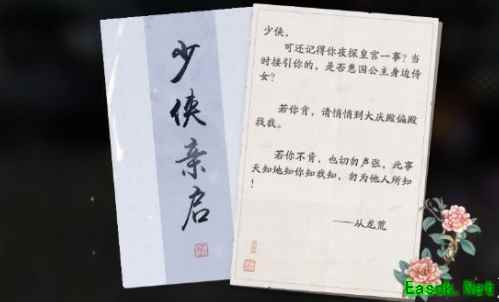 少侠亲启
少侠，
可还记得你夜探皇宫一事？当
时接引你的，是否惠国公主身边侍
女？
若你肯，请悄悄到大庆殿偏殿
找我。
若你不肯，也切勿声张，此事
天知地知你知我知，勿为他人所知
！
——从龙荒
Easdk.Net